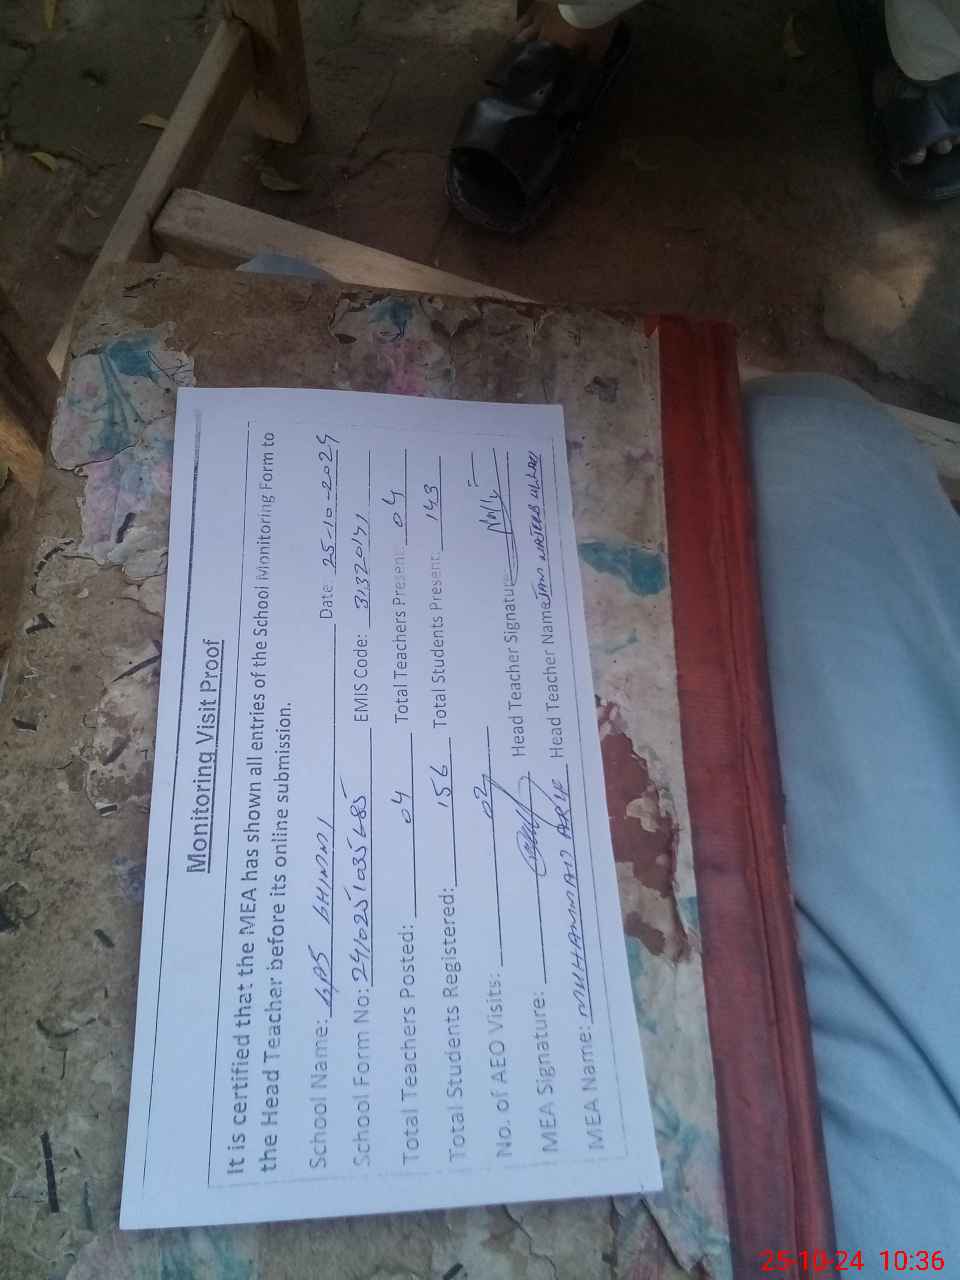 Monitoring Visit Proof
It is certified that the MEA has shown all entries of the School Monitoring Form to
the Head Teacher before its online submission.
School Name: GPS BHINDNI Date: 25-10-2024
School Form No: 2410251035685 EMIS Code: 31320171
Total Teachers Posted: 04 Total Teachers Present: 04
Total Students Registered: 156 Total Students Present: 143
No. of AEO Visits: 02
MEA Signature: Head Teacher Signature
MEA Name: MUHAMMAD ARIF Head Teacher Name JAM
25-10-24 10:36